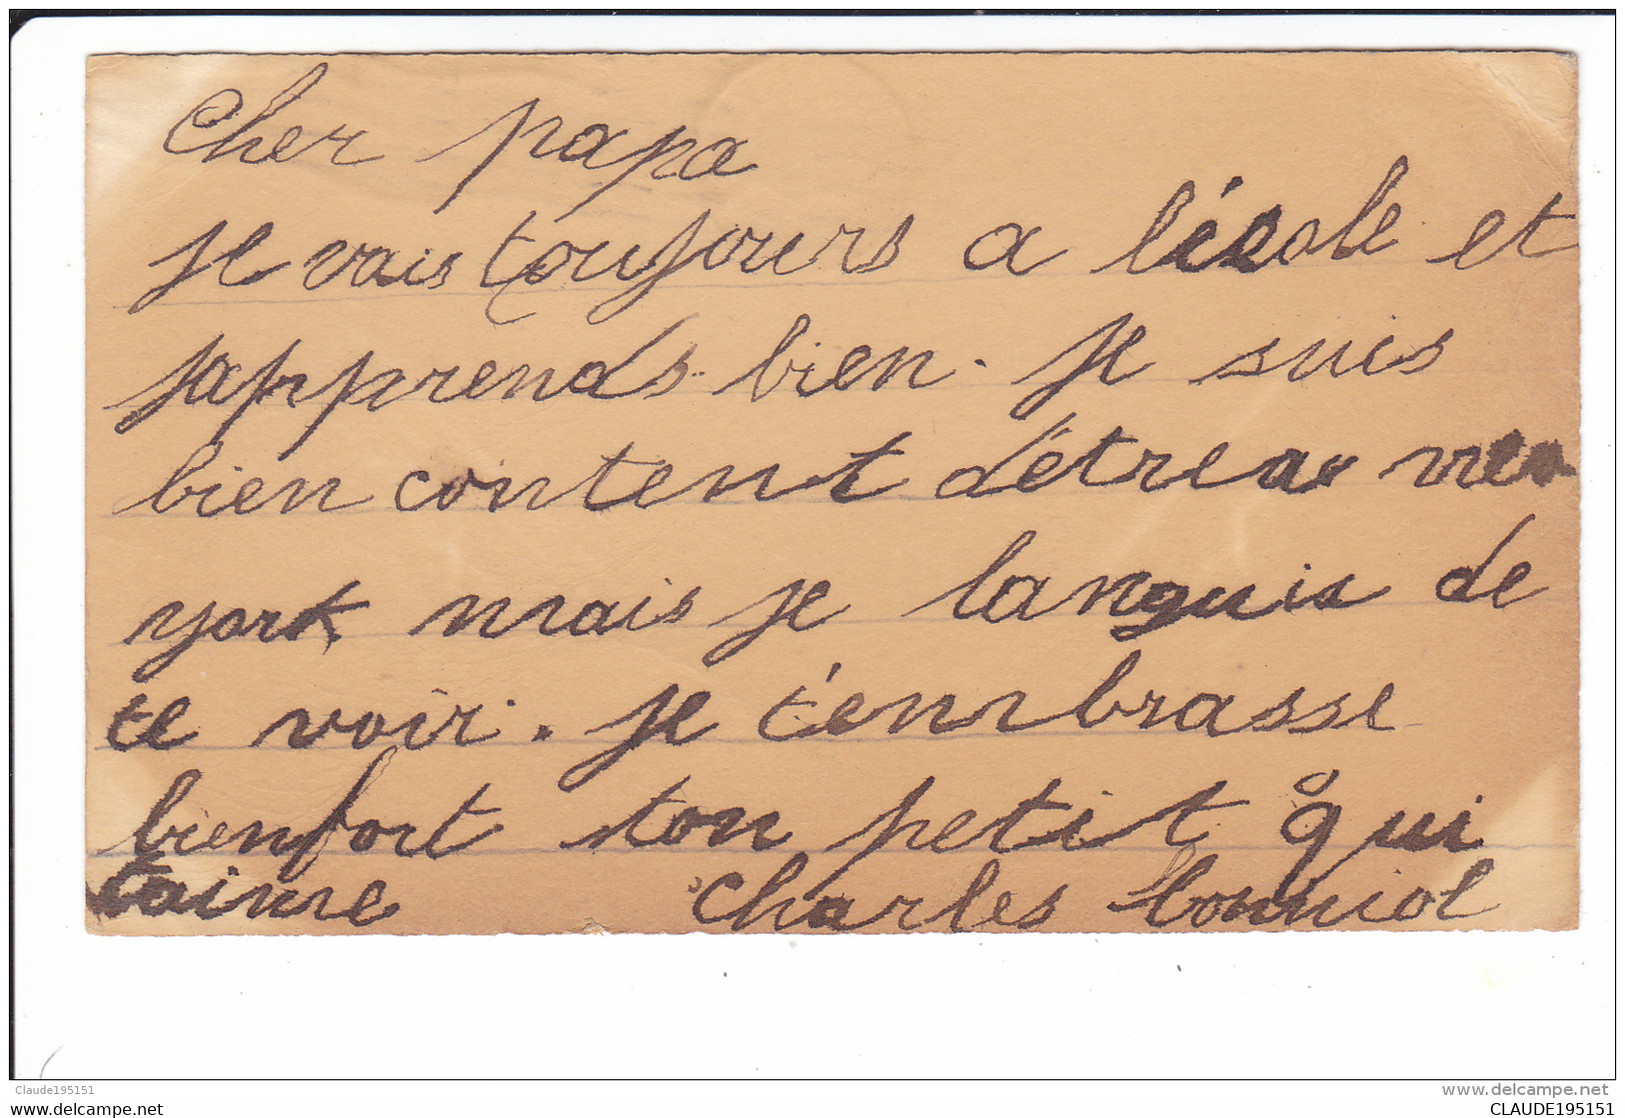 Cher papa
je vais toujours a l'école et
japprends bien. je suis
bien content d'être a new
york mais je languis de
te voir. je t'embrasse
bienfort ton petit g qui
taime Charles
Claude195151
www.delcampe.net
Claude195151
CLAUDE195151